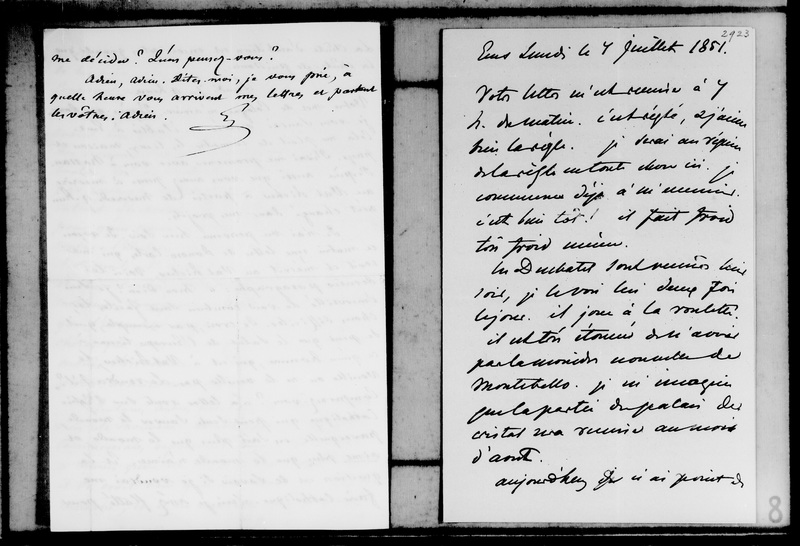 me décider ? Qu'en pensez-vous ?
Adieu, adieu. Dites-moi, je vous prie, à
quelle heure vous arrivent mes lettres et partent
les vôtres. Adieu.
G
2923
Ems Lundi le 7 juillet 1851.
Votre lettre m'est remise à 7
h. du matin. c'est réglé, et j'aime
bien la règle. je serai au régime
de la règle en toute chose ici. je
commence déjà à m'ennuyer.
c'est bien tôt ! il fait froid
très froid même.
les Duchatel sont venus hier
soir, je le vois lui deux fois
le jour. il joue à la roulette.
il est très étonné de n'avoir
pas la moindre nouvelle de
Montebello. je m'imagine
que la partie du palais de
cristal sera remise au mois
d'août.
aujourd'hui je n'ai point de
8